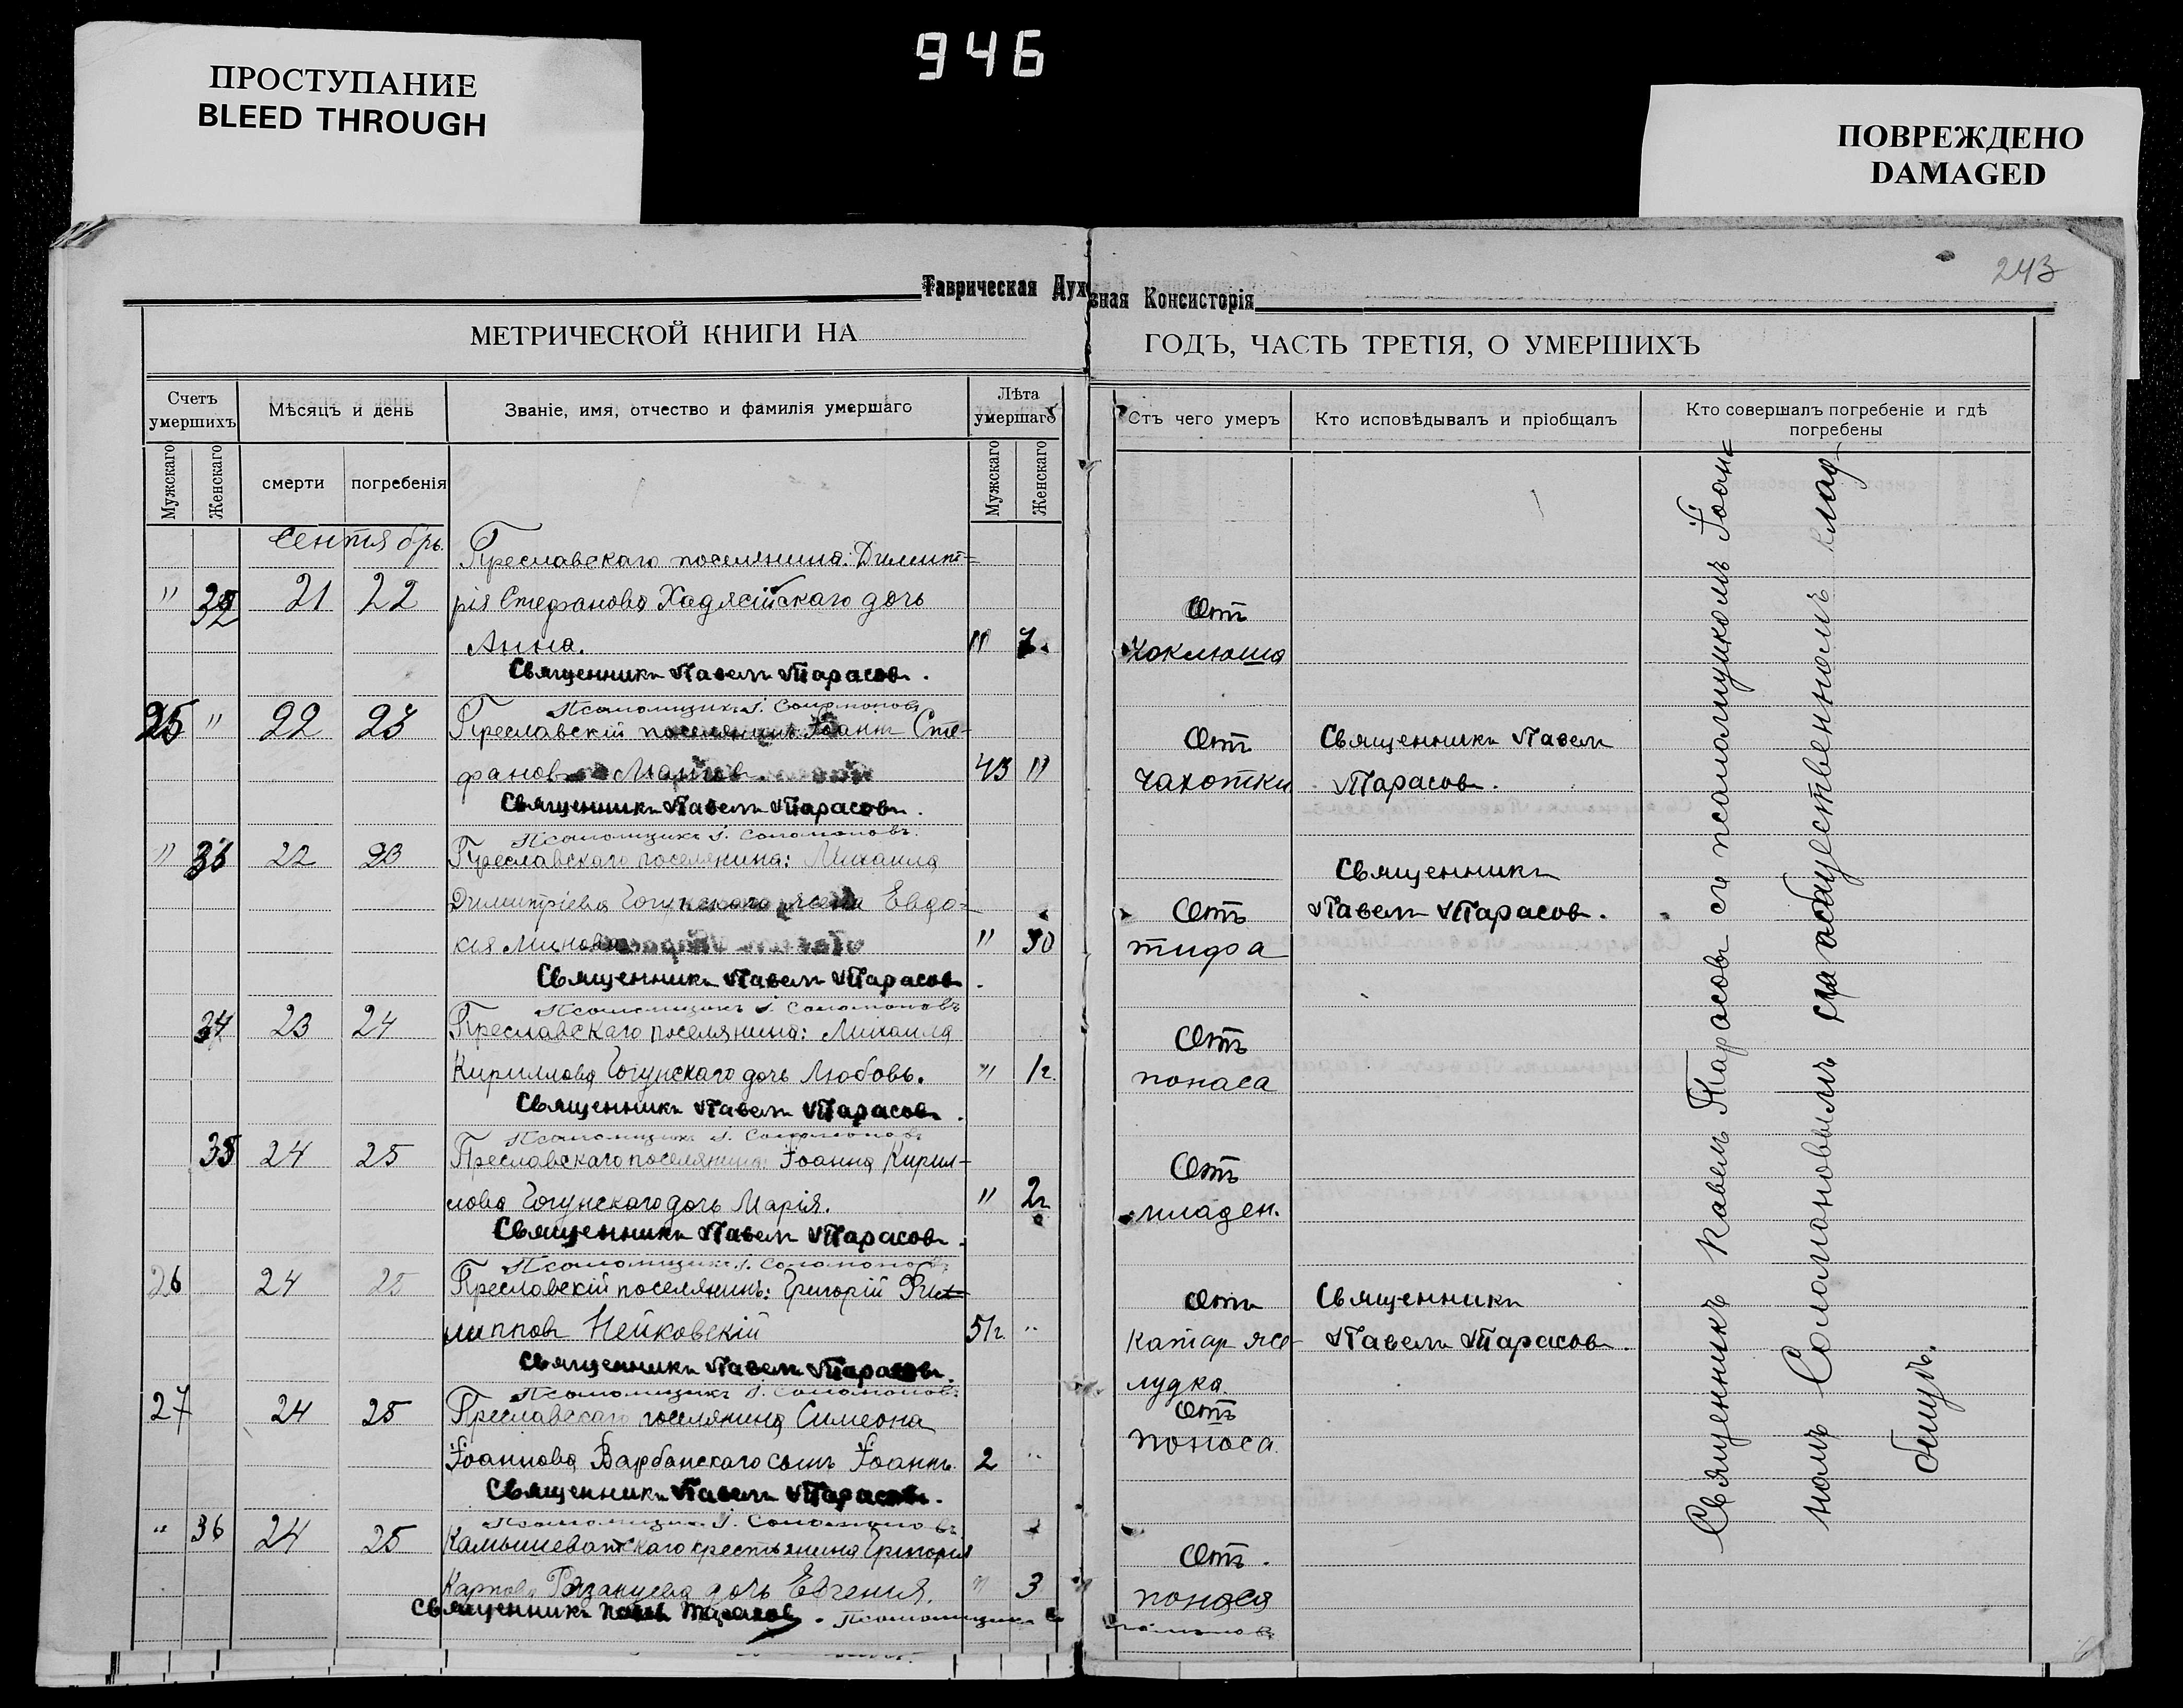 946
ПРОСТУПАНИЕ
BLEED THROUGH
ПОВРЕЖДЕНО
DAMAGED
243
Таврическая Духовная Консисторія
МЕТРИЧЕСКОЙ КНИГИ НА ГОДЪ, ЧАСТЬ ТРЕТІЯ, О УМЕРШИХЪ
Счетъ умершихъ
Мѣсяцъ и день
Званіе, имя, отчество и фамилія умершаго
Лѣта умершаго
Отъ чего умеръ
Кто исповѣдывалъ и пріобщалъ
Кто совершалъ погребеніе и гдѣ погребены
Мужскаго
Женскаго
смерти
погребенія
Мужскаго
Женскаго
Сентябрь.
Преславскаго поселянина: Димит=
" 32 21 22 рія Стефанова дочь Отъ
Анна. " 7. Коклюша
Священникъ Павелъ Тарасовъ.
Псаломщикъ І. Соломоновъ
25 " 22 23 Преславскій поселянинъ Іоаннъ Сте- Отъ Священникъ Павелъ
фановъ 43 " чахотки Тарасовъ.
Священникъ Павелъ Тарасовъ.
Псаломщикъ І. Соломоновъ.
" 33 22 23 Преславскаго поселянина: Михаила
Священникъ
Димитріева Гогунскаго жена Евдо= Отъ Павелъ Тарасовъ.
кія Минова " 30 тифа
Священникъ Павелъ Тарасовъ.
Псаломщикъ І. Соломоновъ
34 23 24 Преславскаго поселянина: Михаила Отъ
Кириллова Гогунскаго дочь Любовь. " 1г. поноса
Священникъ Павелъ Тарасовъ.
Псаломщикъ І. Соломоновъ
35 24 25 Преславскаго поселянина: Іоанна Кирил- Отъ
лова Гогунскаго дочь Марія. " 2г. младен.
Священникъ Павелъ Тарасовъ.
Псаломщикъ І. Соломоновъ
26 24 25 Преславскій поселянинъ: Григорій Фил- Отъ Священникъ
липповъ Нейковскій 51г. " катар. же- Павелъ Тарасовъ.
Священникъ Павелъ Тарасовъ. лудка.
Псаломщикъ І. Соломоновъ
27 24 25 Преславскаго поселянина Симеона Отъ
поноса.
Іоаннова Варбанскаго сынъ Іоаннъ. 2 "
Священникъ Павелъ Тарасовъ.
Псаломщикъ І. Соломоновъ
" 36 24 25 Камышеватскаго крестьянина Григорія Отъ.
Карпова Рязанцева дочь Евгенія. " 3 поноса
Священникъ Павелъ Тарасовъ. Псаломщикъ І. Соломоновъ
Священникъ Павелъ Тарасовъ съ псаломщикомъ Іоан=
номъ Соломоновымъ на общественномъ клад-
бищѣ.